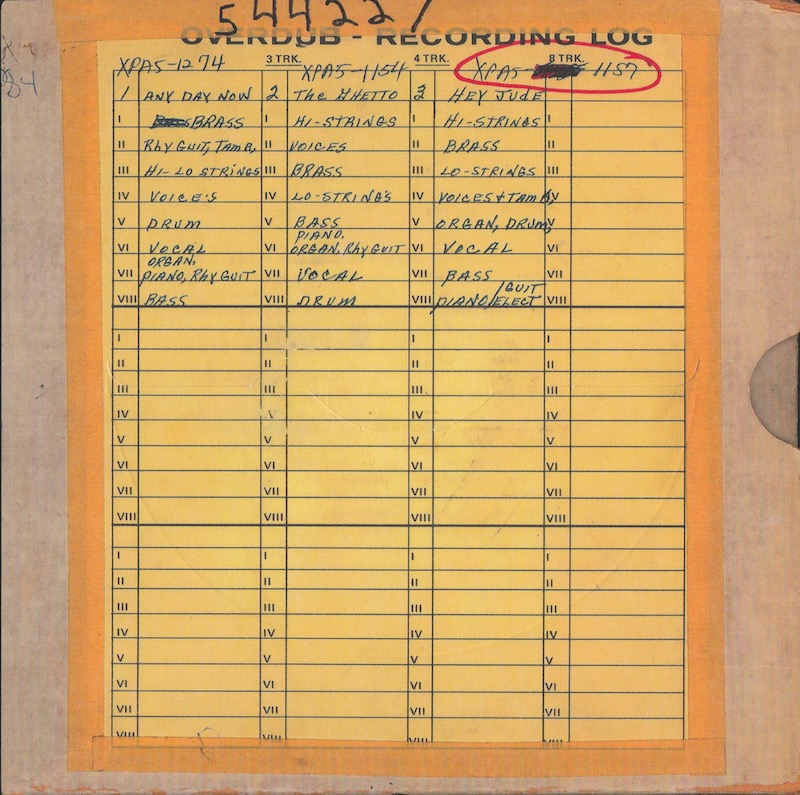 544227
OVERDUB - RECORDING LOG
3 TRK. 4 TRK. 8 TRK.
XPA5-1274 XPA5-1154 XPA5- 1157
1 ANY DAY NOW 2 The GHETTO 3 HEY JUDE
I BRASS I HI-STRINGS I HI-STRINGS I
II Rhy GUIT, TAMB, II VOICES II BRASS II
III HI-LO STRINGS III BRASS III LO-STRINGS III
IV VOICE'S IV LO-STRINGS IV VOICES + TAMB, IV
V DRUM V BASS V ORGAN, DRUM, V
PIANO,
VI VOCAL VI ORGAN, Rhy GUIT VI VOCAL VI
ORGAN,
VII PIANO, Rhy GUIT VII VOCAL VII BASS VII
GUIT
VIII BASS VIII DRUM VIII PIANO/ELECT VIII
I I I I
II II II II
III III III III
IV V IV IV
V V V V
VI VI VI VI
VII VII VII VII
VIII VIII VIII VIII
I I I I
II II II II
III III III III
IV IV IV IV
V V V V
VI VI VI VI
VII VII VII VII
VIII VIII VIII VIII